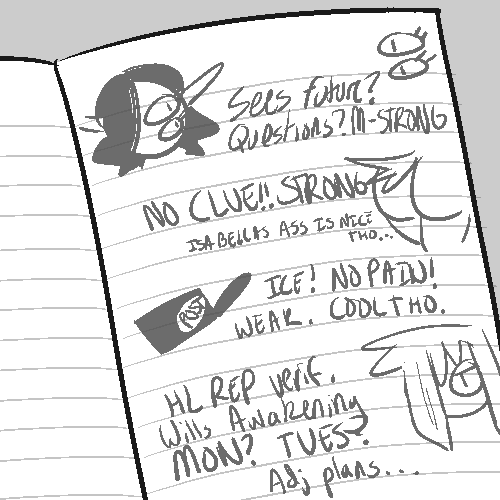 Sees future?
Questions? M-STRONG
NO CLUE!! STRONG
ISABELLAS ASS IS NICE
THO...
ICE! NO PAIN!
WEAK. COOL THO.
POST
HL REP verif.
Wills Awakening
MON? TUES?
Adj plans...